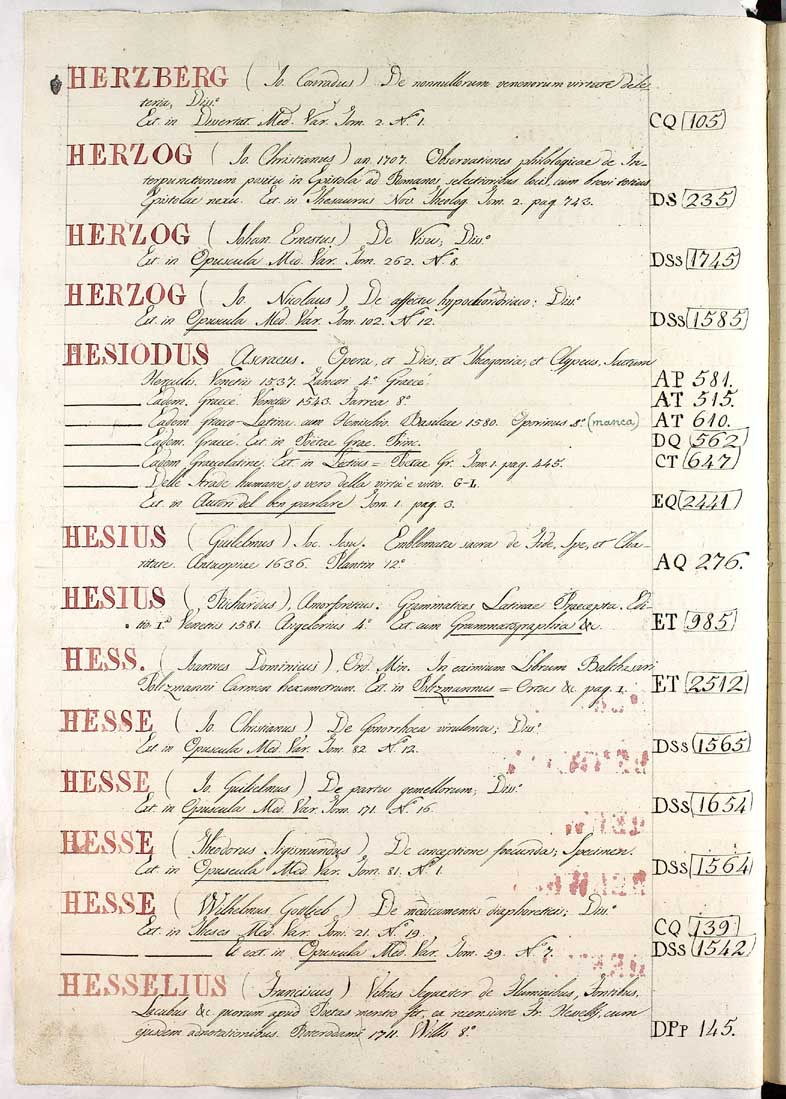 HERZBERG ( Jo. Conradus ) De nonnullorum venenorum virtute dele-
teria, Diss.º
Ext. in Dissertat. Med. Var. Tom. 2. N.º 1. CQ 105
HERZOG ( Jo. Christianus ) an. 1707. Observationes philologicae de In-
terpunctionum positu in Epistola ad Romanos selectioribus locis, cum brevi totius
Epistolae nexu. Ext. in Thesaurus Nov. Theolog. Tom. 2. pag. 743. DS 235
HERZOG ( Johan Ernestus ) De Visu; Diss.º
Ext. in Opuscula Med. Var. Tom. 262. N.º 8. DSs 1745
HERZOG ( Jo. Nicolaus ) De affectu hypochondriaco; Diss.º
Ext. in Opuscula Med. Var. Tom. 102. N.º 12. DSs 1585
HESIODUS Ascraeus. Opera, et Dies, et Theogonia, et Clypeus, Scutum
Herculis. Venetiis 1537. Zanetti 4º Graecè. AP 581.
Eadem. Graecè Venetiis 1543. Farrea 8º AT 515.
Eadem Graeco-Latina cum Basileae 1580. Oporinus 8º (manca) AT 610.
Eadem. Graecè. Ext. in Poëtae Grae. Princ. DQ 562
Eadem Graecolatine. Ext. in Lectius = Poëtae Gr. Tom. 1. pag. 445. CT 647
Delle Strade humane, o vero della virtù e vitio. G-L.
Ext. in Autori del ben parlare Tom. 1. pag. 3. EQ 2441
HESIUS ( Guilelmus ) Soc. Jesu. Emblemata sacra de Fide, Spe, et Cha-
ritate. Antuerpiae 1636. Plantin 12º AQ 276.
HESIUS ( Richardus ), Amorfortius. Grammatices Latinae Praecepta. Edi-
tio 1.ª Venetiis 1581. Angelerius 4º Ext. cum Grammatographia &c. ET 985
HESS. ( Joannes Dominicus ), Ord. Min. In eximium Librum Balthesari
Poltzmanni Carmen hexametrum. Ext. in Poltzmannus = Ortus &c. pag. 1. ET 2512
HESSE ( Jo. Christianus ) De Gonorrhoea virulenta; Diss.º
Ext. in Opuscula Med. Var. Tom. 82. N.º 12. DSs 1565
HESSE ( Jo. Guilielmus ) De partu gemellorum; Diss.º
Ext. in Opuscula Med. Var. Tom. 171. N.º 16. DSs 1654
HESSE ( Theodorus Sigismundus ) De conceptione foecunda; Specimen.
Ext. in Opuscula Med. Var. Tom. 81. N.º 1. DSs 1564
HESSE ( Wilhelmus Gotlieb ) De medicamentis diaphoreticis; Diss.º
Ext. in Theses Med. Var. Tom. 21. N.º 19. CQ 139
Et ext. in Opuscula Med. Var. Tom. 59. N.º 7. DSs 1542
HESSELIUS ( Franciscus ) Vibius Sequester de Fluminibus, Fontibus,
Lacubus &c quorum apud Poetas mentio fit, ex recensione Fr. Hesselii, cum
ejusdem adnotationibus. Roterodami 1711. Wills 8º DPp 145.